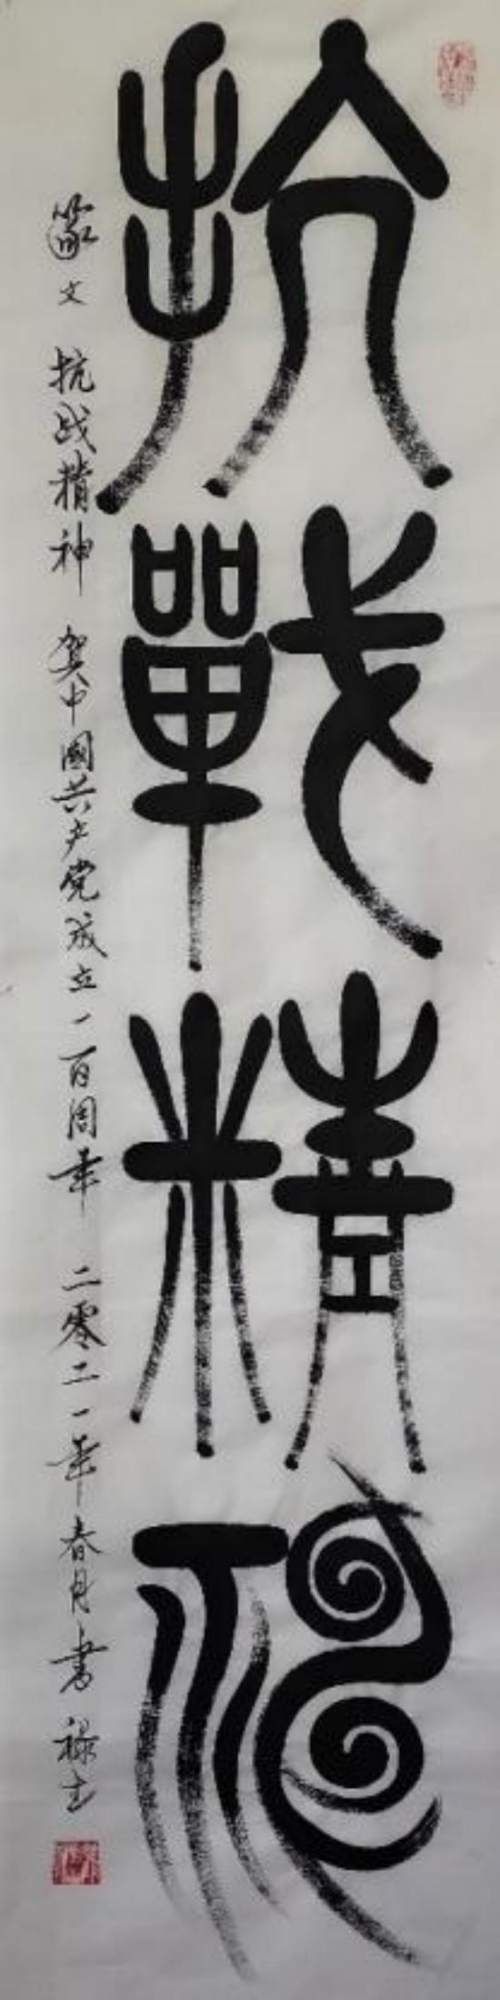 抗戰精神
篆文 抗战精神 贺中國共产党成立一百周年 二零二一年春月书 禄士